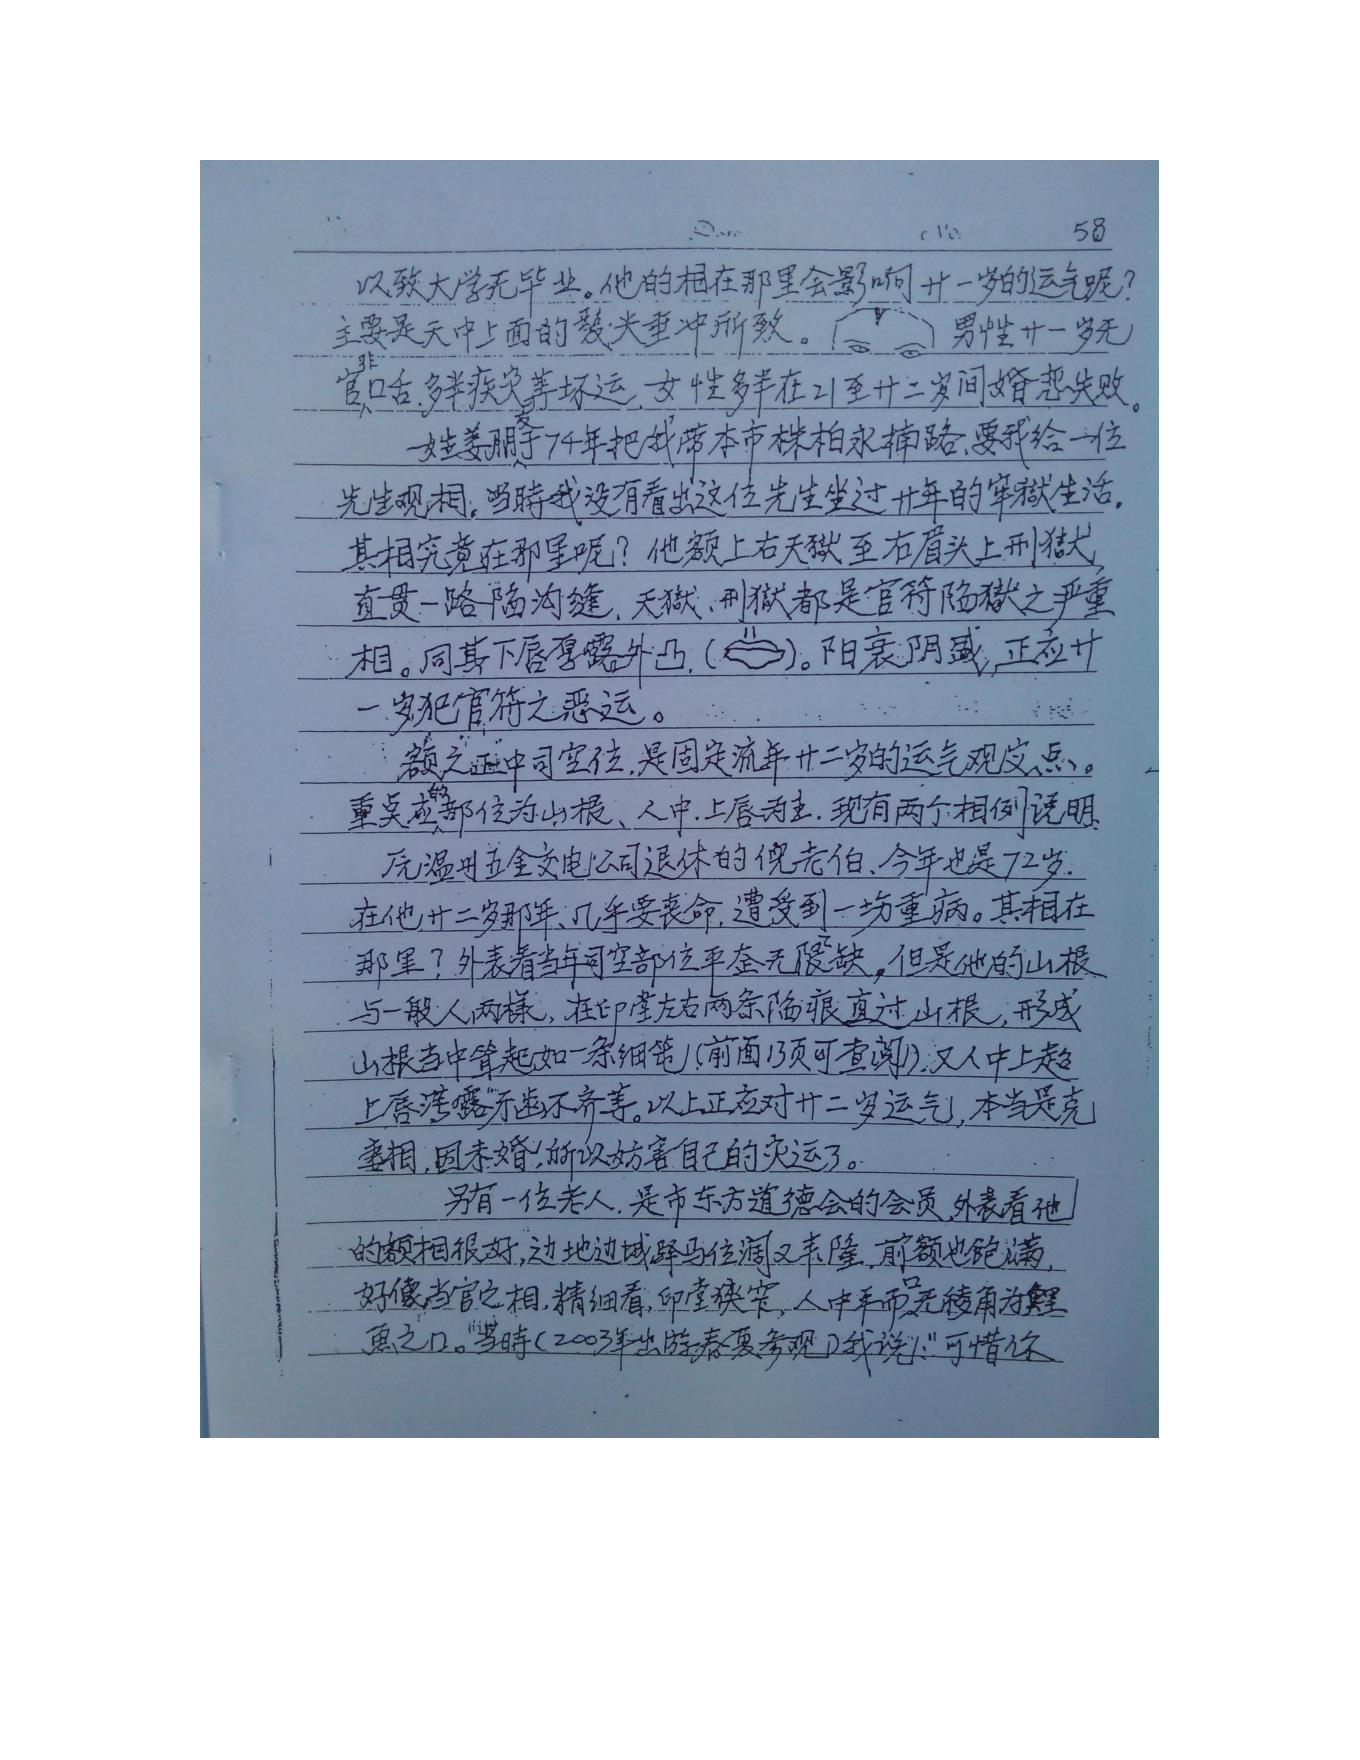 58
以致大学无毕业。他的相在那里会影响廿一岁的运气呢?
主要是天中上面的髮尖垂冲所致。 男性廿一岁无
官非口舌,多半疾灾等坏运,女性多半在21至廿二岁间婚恋失败。
姓姜朋友于74年把我带本市株柏永楠路,要我给一位
先生观相,当時我没有看出这位先生坐过廿年的牢獄生活,
其相究竟在那里呢?他额上右天獄至右眉头上刑獄,
直贯一路陷沟缝,天獄、刑獄都是官符陷獄之严重
相。同其下唇厚露外凸,( )。阳衰阴盛,正应廿
一岁犯官符之恶运。
额之正中司空位,是固定流年廿二岁的运气观察点。
重点应的部位为山根、人中,上唇为主,现有两个相例说明
原温州五金交电公司退休的倪老伯、今年也是72岁.
在他廿二岁那年、几乎要丧命,遭受到一场重病。其相在
那里?外表看当年司空部位平奎无缺,但是他的山根
与一般人两樣,在印堂左右两条陷痕直过山根,形成
山根当中耸起如一条细笔(前面13页可查阅),又人中上
上唇薄露牙齿不齐等。以上正应对廿二岁运气,本当是克
妻相,因未婚,所以妨害自己的灾运了。
另有一位老人,是市东方道德会的会员,外表看他
的额相很好,边地边城驿马位阔又丰隆,前额也饱满,
好像当官之相,精细看,印堂狭窄,人中平而口无稜角为鲤
鱼之口。当時(2003年出游春夏参观)我说:"可惜你